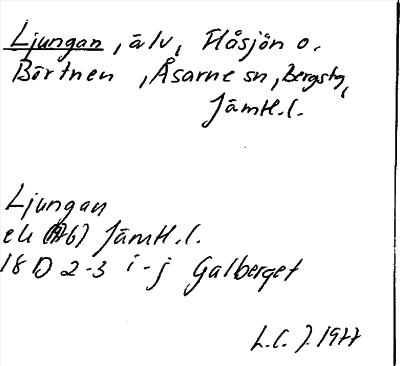 Ljungan, älv, Flåsjön o.
Börtnen, Åsarne sn, Bergs tg,
Jämtl.l.
Ljungan
ek (A6) Jämtl.l.
18 D 2-3 i-j Galberget
L.C. J. 1977